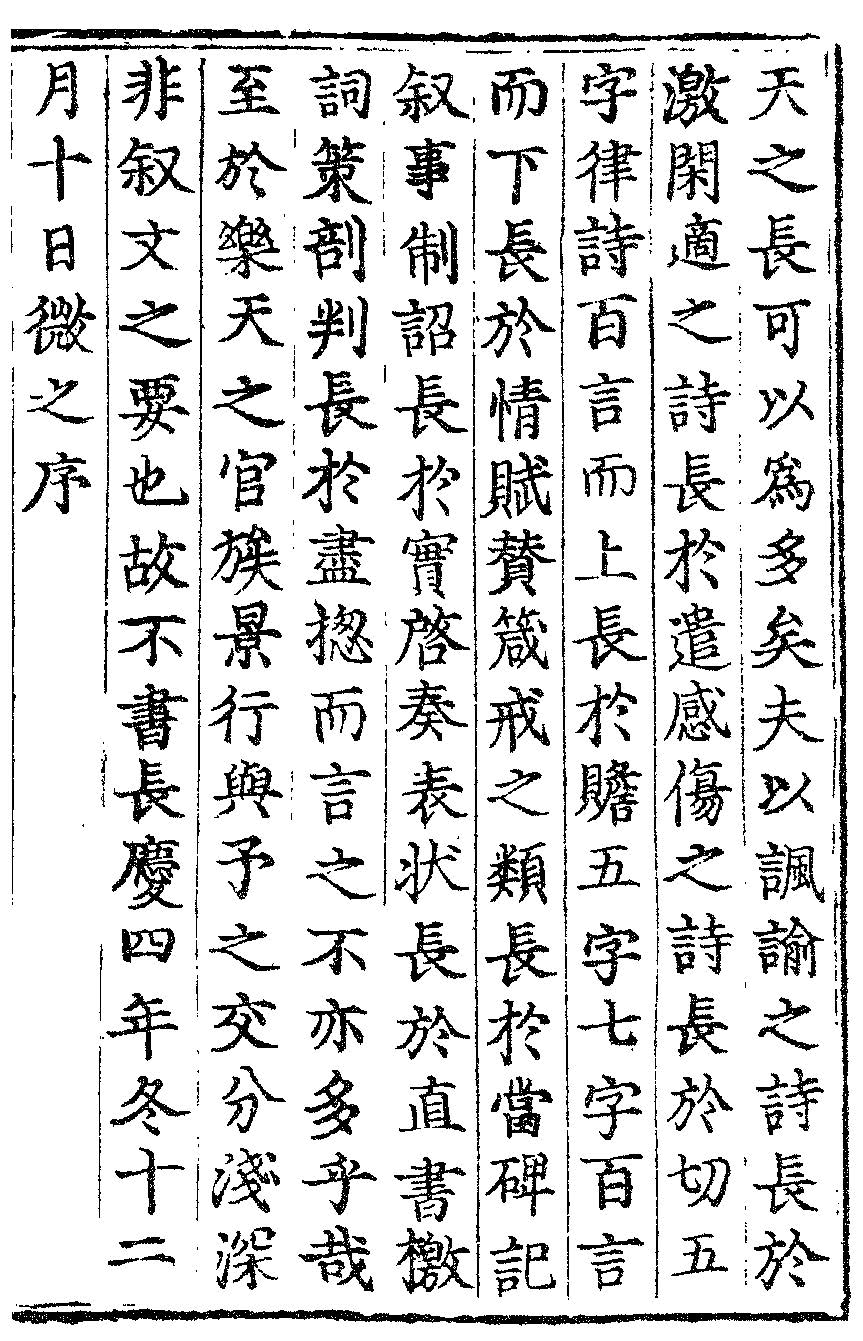 天之長可以爲多矣夫以諷諭之詩長於
激閑適之詩長於遣感傷之詩長於切五
字律詩百言而上長於贍五字七字百言
而下長於情賦贊箴戒之類長於當碑記
叙事制詔長於實啓奏表状長於直書檄
詞策剖判長於盡揔而言之不亦多乎哉
至於樂天之官族景行與予之交分淺深
非叙文之要也故不書長慶四年冬十二
月十日微之序